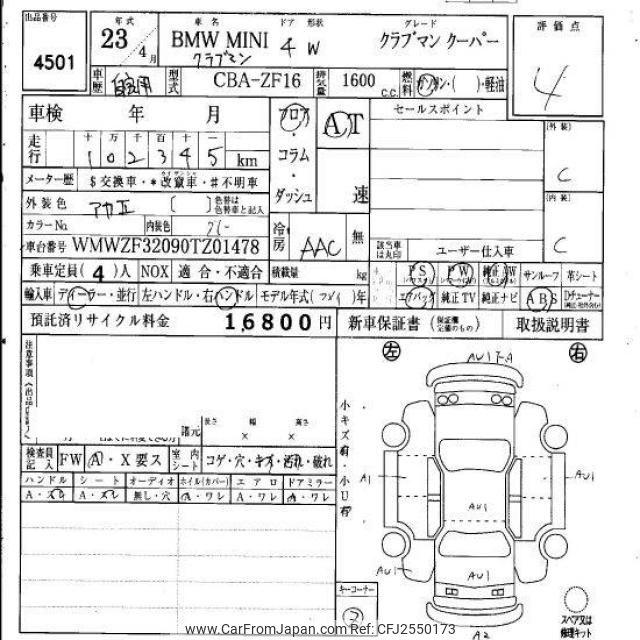 出品番号 年式 車名 ドア 形状 グレード 評価点
4501 23 4月 BMW MINI クラブマン 4 W クラブマン クーパー 4
車歴 自家用 型式 CBA-ZF16 排気量 1600 c.c. 燃料 ガソリン・( )・軽油
車検 年 月 フロア AT セールスポイント (外装)
走行 十 万 千 百 十 一 ・コラム・ダッシュ 速 C
1 0 2 3 4 5 km
メーター歴 $交換車・*改竄車・#不明車 (内装)
外装色 アカエ [ ] 色替は色替車と記入 冷房 AAC 無 C
カラーNo. 内装色
車台番号 WMWZF32090TZ01478 該当車は丸印 ユーザー仕入車
乗車定員(4)人 NOX 適合・不適合 積載量 kg PS PW 純正AW サンルーフ 革シート
輸入車 ディーラー・並行 左ハンドル・右ハンドル モデル年式( )年 エアバッグ 純正TV 純正ナビ ABS Dチューナー
預託済リサイクル料金 16800円 新車保証書(保証欄記載のもの) 取扱説明書
注意事項 左 AU1 F.A 右
諸元 長さ 幅 高さ
× ×
検査員記入 FW A・X要ス 室内シート コゲ・穴・キズ・汚れ・破れ
ハンドル シート オーディオ ホイル(カバー) エアロ ドアミラー
A・スレ A・スレ 無し・穴 A・ワレ A・ワレ A・ワレ
小キズ有・小U有
A1 AU1 AU1
AU1 AU1 AU1
A2
キーコーナー
2
スペア又は修理キット
www.CarFromJapan.com Ref: CFJ2550173